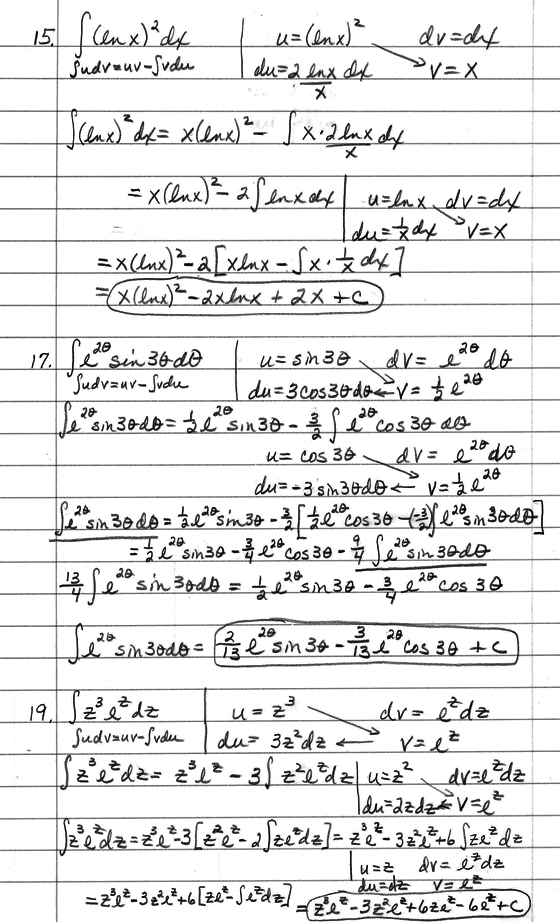 15. ∫(lnx)²dx | u=(lnx)² dv=dx
∫udv=uv-∫vdu | du=2 lnx/x dx v=x
∫(lnx)²dx= x(lnx)² - ∫ x·2lnx/x dx
= x(lnx)² - 2∫lnxdx | u=lnx dv=dx
du=1/x dx v=x
= x(lnx)² - 2[xlnx - ∫x·1/x dx]
= x(lnx)² - 2xlnx + 2x + c
17. ∫e^2θ sin3θdθ | u=sin3θ dv= e^2θ dθ
∫udv=uv-∫vdu | du=3cos3θdθ ← v=½e^2θ
∫e^2θ sin3θdθ= ½e^2θ sin3θ - 3/2 ∫ e^2θ cos3θ dθ
u= cos3θ dv= e^2θ dθ
du=-3sin3θdθ ← v=½e^2θ
∫e^2θ sin3θdθ = ½e^2θ sin3θ - 3/2[½e^2θ cos3θ -(-3/2)∫e^2θ sin3θdθ]
= ½e^2θ sin3θ - ¾e^2θ cos3θ - 9/4 ∫e^2θ sin3θdθ
13/4 ∫e^2θ sin3θdθ = ½e^2θ sin3θ - ¾e^2θ cos3θ
∫e^2θ sin3θdθ= 2/13 e^2θ sin3θ - 3/13 e^2θ cos3θ + c
19. ∫z³e^z dz | u=z³ dv= e^z dz
∫udv=uv-∫vdu | du= 3z²dz ← v=e^z
∫z³e^z dz= z³e^z - 3∫z²e^z dz | u=z² dv=e^z dz
du=2zdz ← v=e^z
∫z³e^z dz=z³e^z-3[z²e^z-2∫ze^z dz]= z³e^z - 3z²e^z+6∫ze^z dz
u=z dv= e^z dz
du=dz v=e^z
=z³e^z-3z²e^z+6[ze^z-∫e^z dz]= z³e^z-3z²e^z+6ze^z-6e^z+c